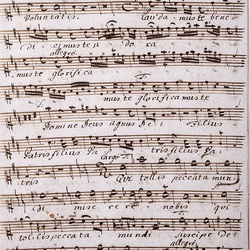 Voluntatis. Lauda muste bene
Di ci muste a do ra
allegro.
muste glorifica
muste glorifica muste
Domine Deus agnus De i filius
Patris filius Pa tris filius Pa
Largo
tris Qui tollis peccata mun
Di mise re re nobis qui
allegro
tollis peccata mundi suscipe De